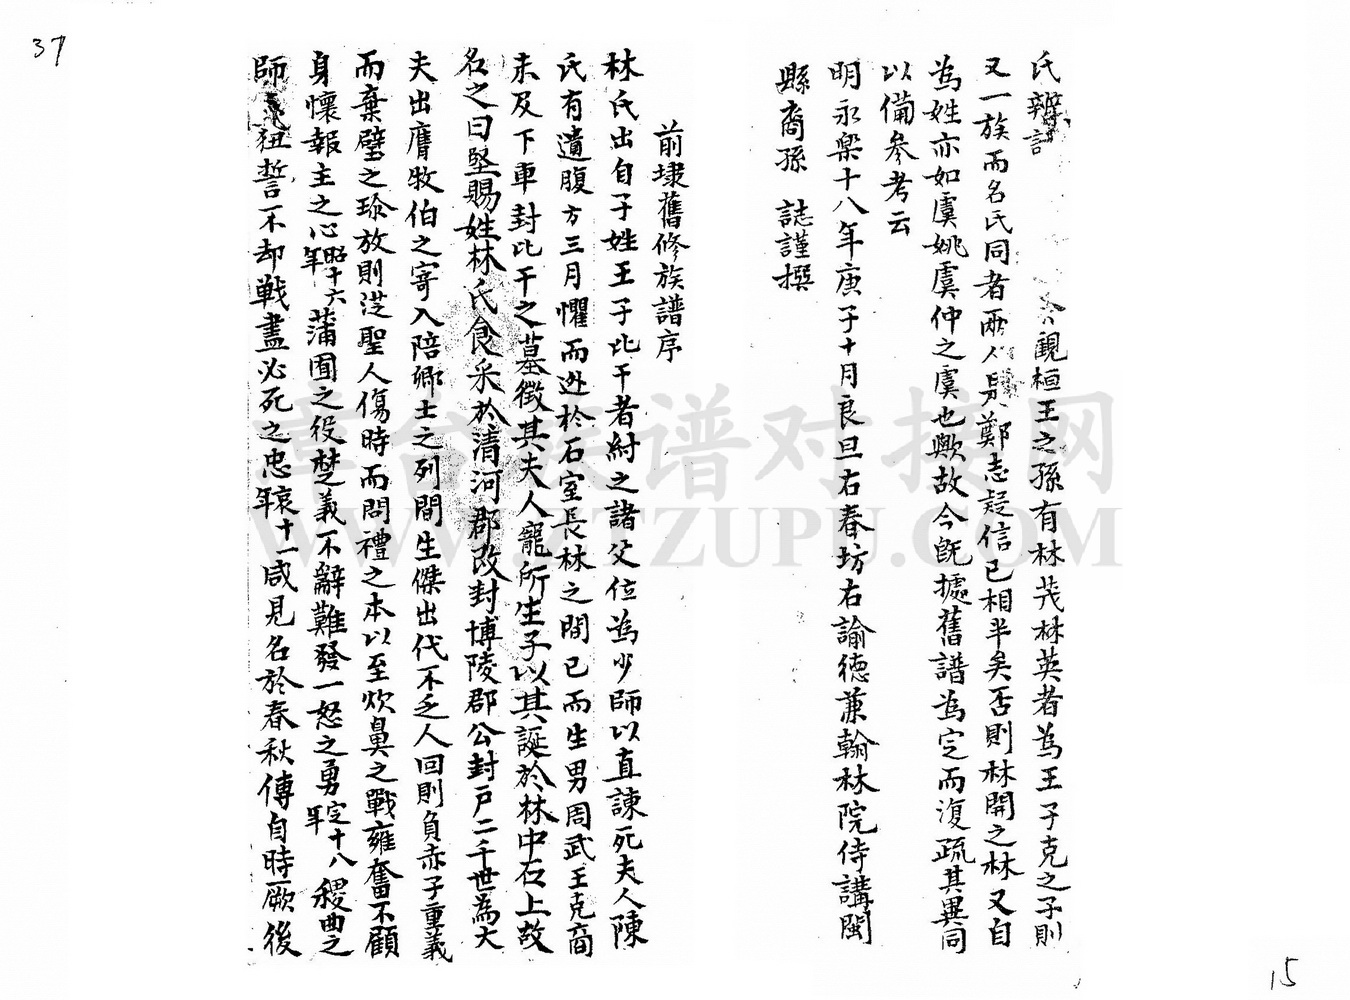 37
氏辨訂 今觀桓王之孫有林茂林英者為王子克之子則
又一族而名氏同者兩人見鄭志疑信已相半矣否則林開之林又自
為姓亦如虞姚虞仲之虞也歟故今既據舊譜為定而復疏其異同
以備參考云
明永樂十八年庚子十月良旦右春坊右諭德兼翰林院侍講閩
縣裔孫 誌謹撰
前埭舊修族譜序
林氏出自子姓王子比干者紂之諸父位為少師以直諫死夫人陳
氏有遺腹方三月懼而迯於石室長林之間已而生男周武王克商
未及下車封比干之墓徵其夫人寵所生子以其誕於林中石上故
名之曰堅賜姓林氏食采於清河郡改封博陵郡公封戸二千世為大
夫出膺牧伯之寄入陪卿士之列間生傑出代不乏人回則負赤子重義
而棄璧之珍放則從聖人傷時而問禮之本以至炊鼻之戰雍奮不顧
身懷報主之心昭十六年蒲圉之役楚義不辭難發一怒之勇定十八年稷曲之
師 紐誓不却戦盡必死之忠哀十一年咸見名於春秋傳自時厥後
15
章台族谱对接网
WWW.ZTZUPU.COM